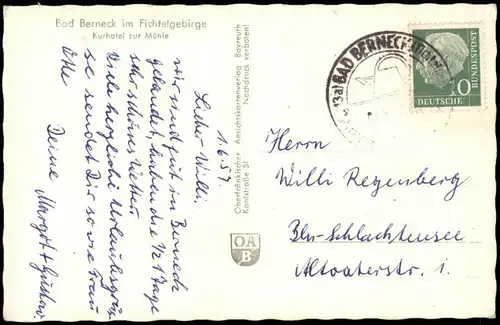 Bad Berneck im Fichtelgebirge
Kurhotel zur Mühle
1.6.57.
Lieber Willi.
wir sind gut in Berneck
gelandet, haben die 1/2 Tage
sehr schönes Wetter.
Viele herzliche Urlaubsgrüs-
se sendet Dir sowie Frau
Deine Margot + Gustav.
Oberfränkischer Ansichtskartenverlag Bayreuth
Kanlstraße 51 Nachdruck verboten!
OA
B
(13a) BAD BERNECK
10
DEUTSCHE
BUNDESPOST
Herrn
Willi Regenberg
Bln-Schlachtensee
Altvaterstr. 1.